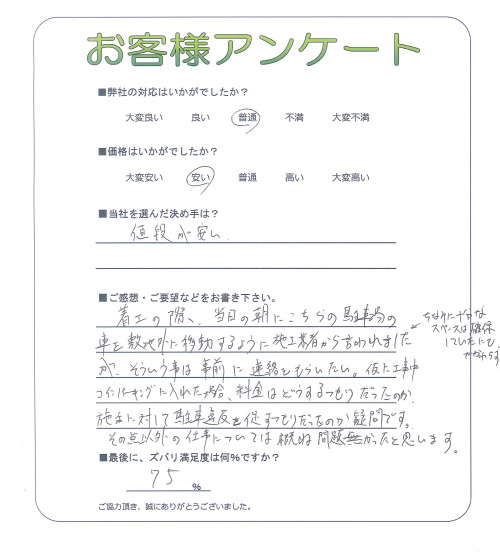 お客様アンケート
■弊社の対応はいかがでしたか？
大変良い 良い 普通 不満 大変不満
■価格はいかがでしたか？
大変安い 安い 普通 高い 大変高い
■当社を選んだ決め手は？
値段が安い
■ご感想・ご要望などをお書き下さい。
着工の際、当日の朝にこちらの駐車場の
車を敷地外に移動するように施工業者から言われました
が、そういう事は事前に連絡をもらいたい。仮に工事中
コインパーキングに入れた場合、料金はどうするつもりだったのか
施主に対して駐車違反を促すつもりだったのか疑問です。
その点以外の仕事については概ね問題無かったと思います。
ちなみに十分な
スペースは確保
していたにも
かかわらず
■最後に、ズバリ満足度は何%ですか？
75 %
ご協力頂き、誠にありがとうございました。